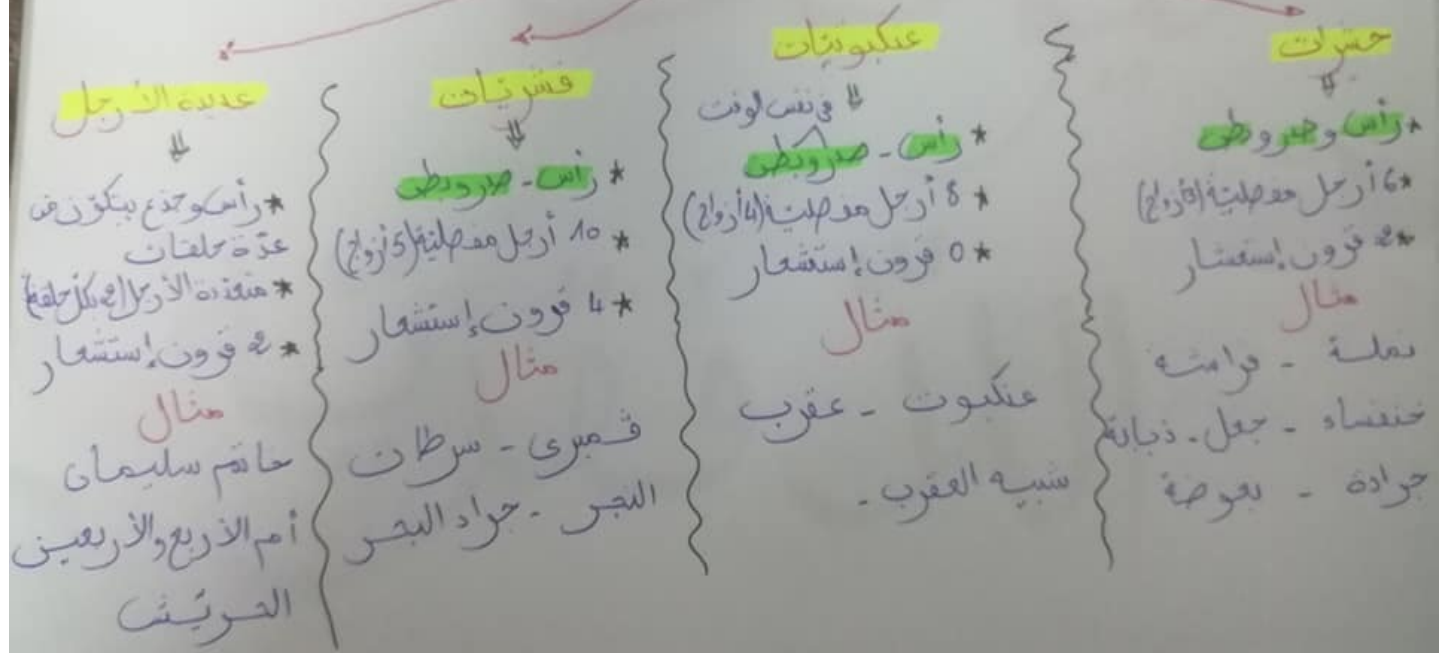 حشرات
* رأس وصدر وبطن
* 6 أرجل مفصلية (3 أزواج)
* 2 قرون إستشعار
مثال
نملة - فراشة
خنفساء - جعل - ذبابة
جرادة - بعوضة
عنكبوتيات
في نفس الوقت
* رأس - صدر وبطن
* 8 أرجل مفصلية (4 أزواج)
* 0 قرون إستشعار
مثال
عنكبوت - عقرب
شبيه العقرب -
قشريات
* رأس - صدر وبطن
* 10 أرجل مفصلية (5 أزواج)
* 4 قرون إستشعار
مثال
قمبري - سرطان
البحر - جراد البحر
عديدة الأرجل
* رأس وجذع يتكون من
عدّة حلقات
* متعددة الأرجل (2 بكل حلقة)
* 2 قرون إستشعار
مثال
خاتم سليمان
أم الأربع والأربعين
الحريش